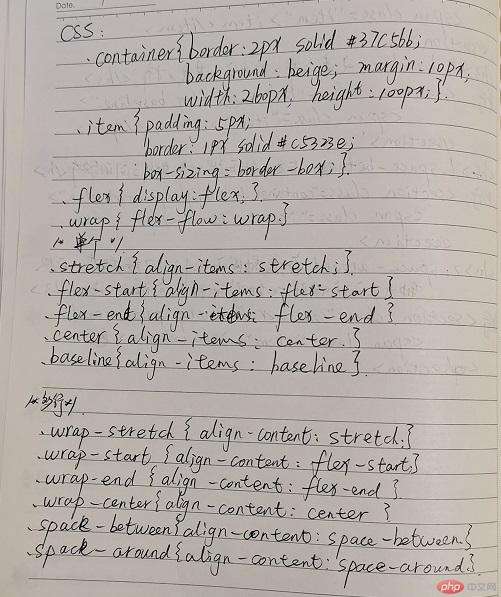 Date.
CSS:
.container{border:2px solid #37c5bb;
background:beige; margin:10px;
width:260px; height:100px;}.
.item{padding:5px;
border:1px solid #c5323e;
box-sizing=border-box;}.
.flex{display:flex;}.
.wrap{flex-flow:wrap.}
/* 单个 */
.stretch{align-items:stretch;}.
.flex-start{align-items:flex-start}
.flex-end{align-items:flex-end}
.center{align-items:center.}
.baseline{align-items:baseline}.
/*多行*/.
.wrap-stretch{align-content:stretch;}
.wrap-start{align-content:flex-start;}
.wrap-end{align-content:flex-end}
.wrap-center{align-content:center}
.spack-between{align-content:space-between.}
.spack-around{align-content:space-around.}.
php 中文网